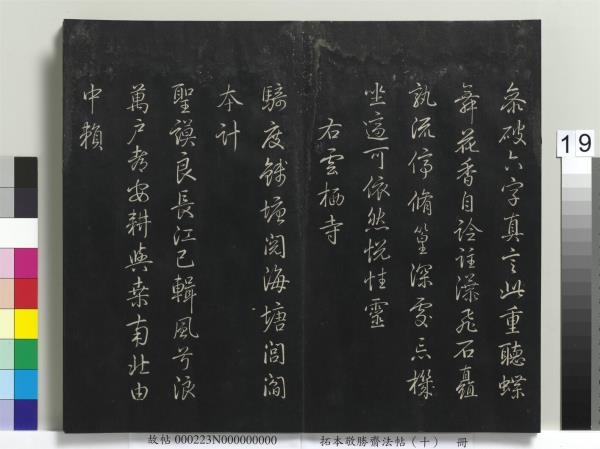 參破六字真言此重聽蝶
舞花香自詮註瀑飛石矗
孰流停脩篁深處忘機
坐適可依然悅性靈
右雲栖寺
騎度錢塘閱海塘閭閻
本計
聖謨良長江已輯風兮浪
萬戶都安耕與桑南北由
中賴
19
故帖 000223N000000000 拓本敬勝齋法帖（十） 冊